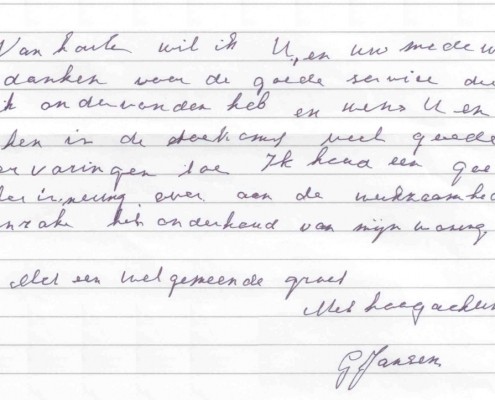 Van harte wil ik U, en uw medew
danken voor de goede service di
ik ondervonden heb en wens U en
hen in de toekomst veel goede
ervaringen toe Ik houd een goe
herinnering over aan de werkzaamhed
inzake het onderhoud van mijn woning
Met een welgemeende groet
Met hoogachtin
G Jansen